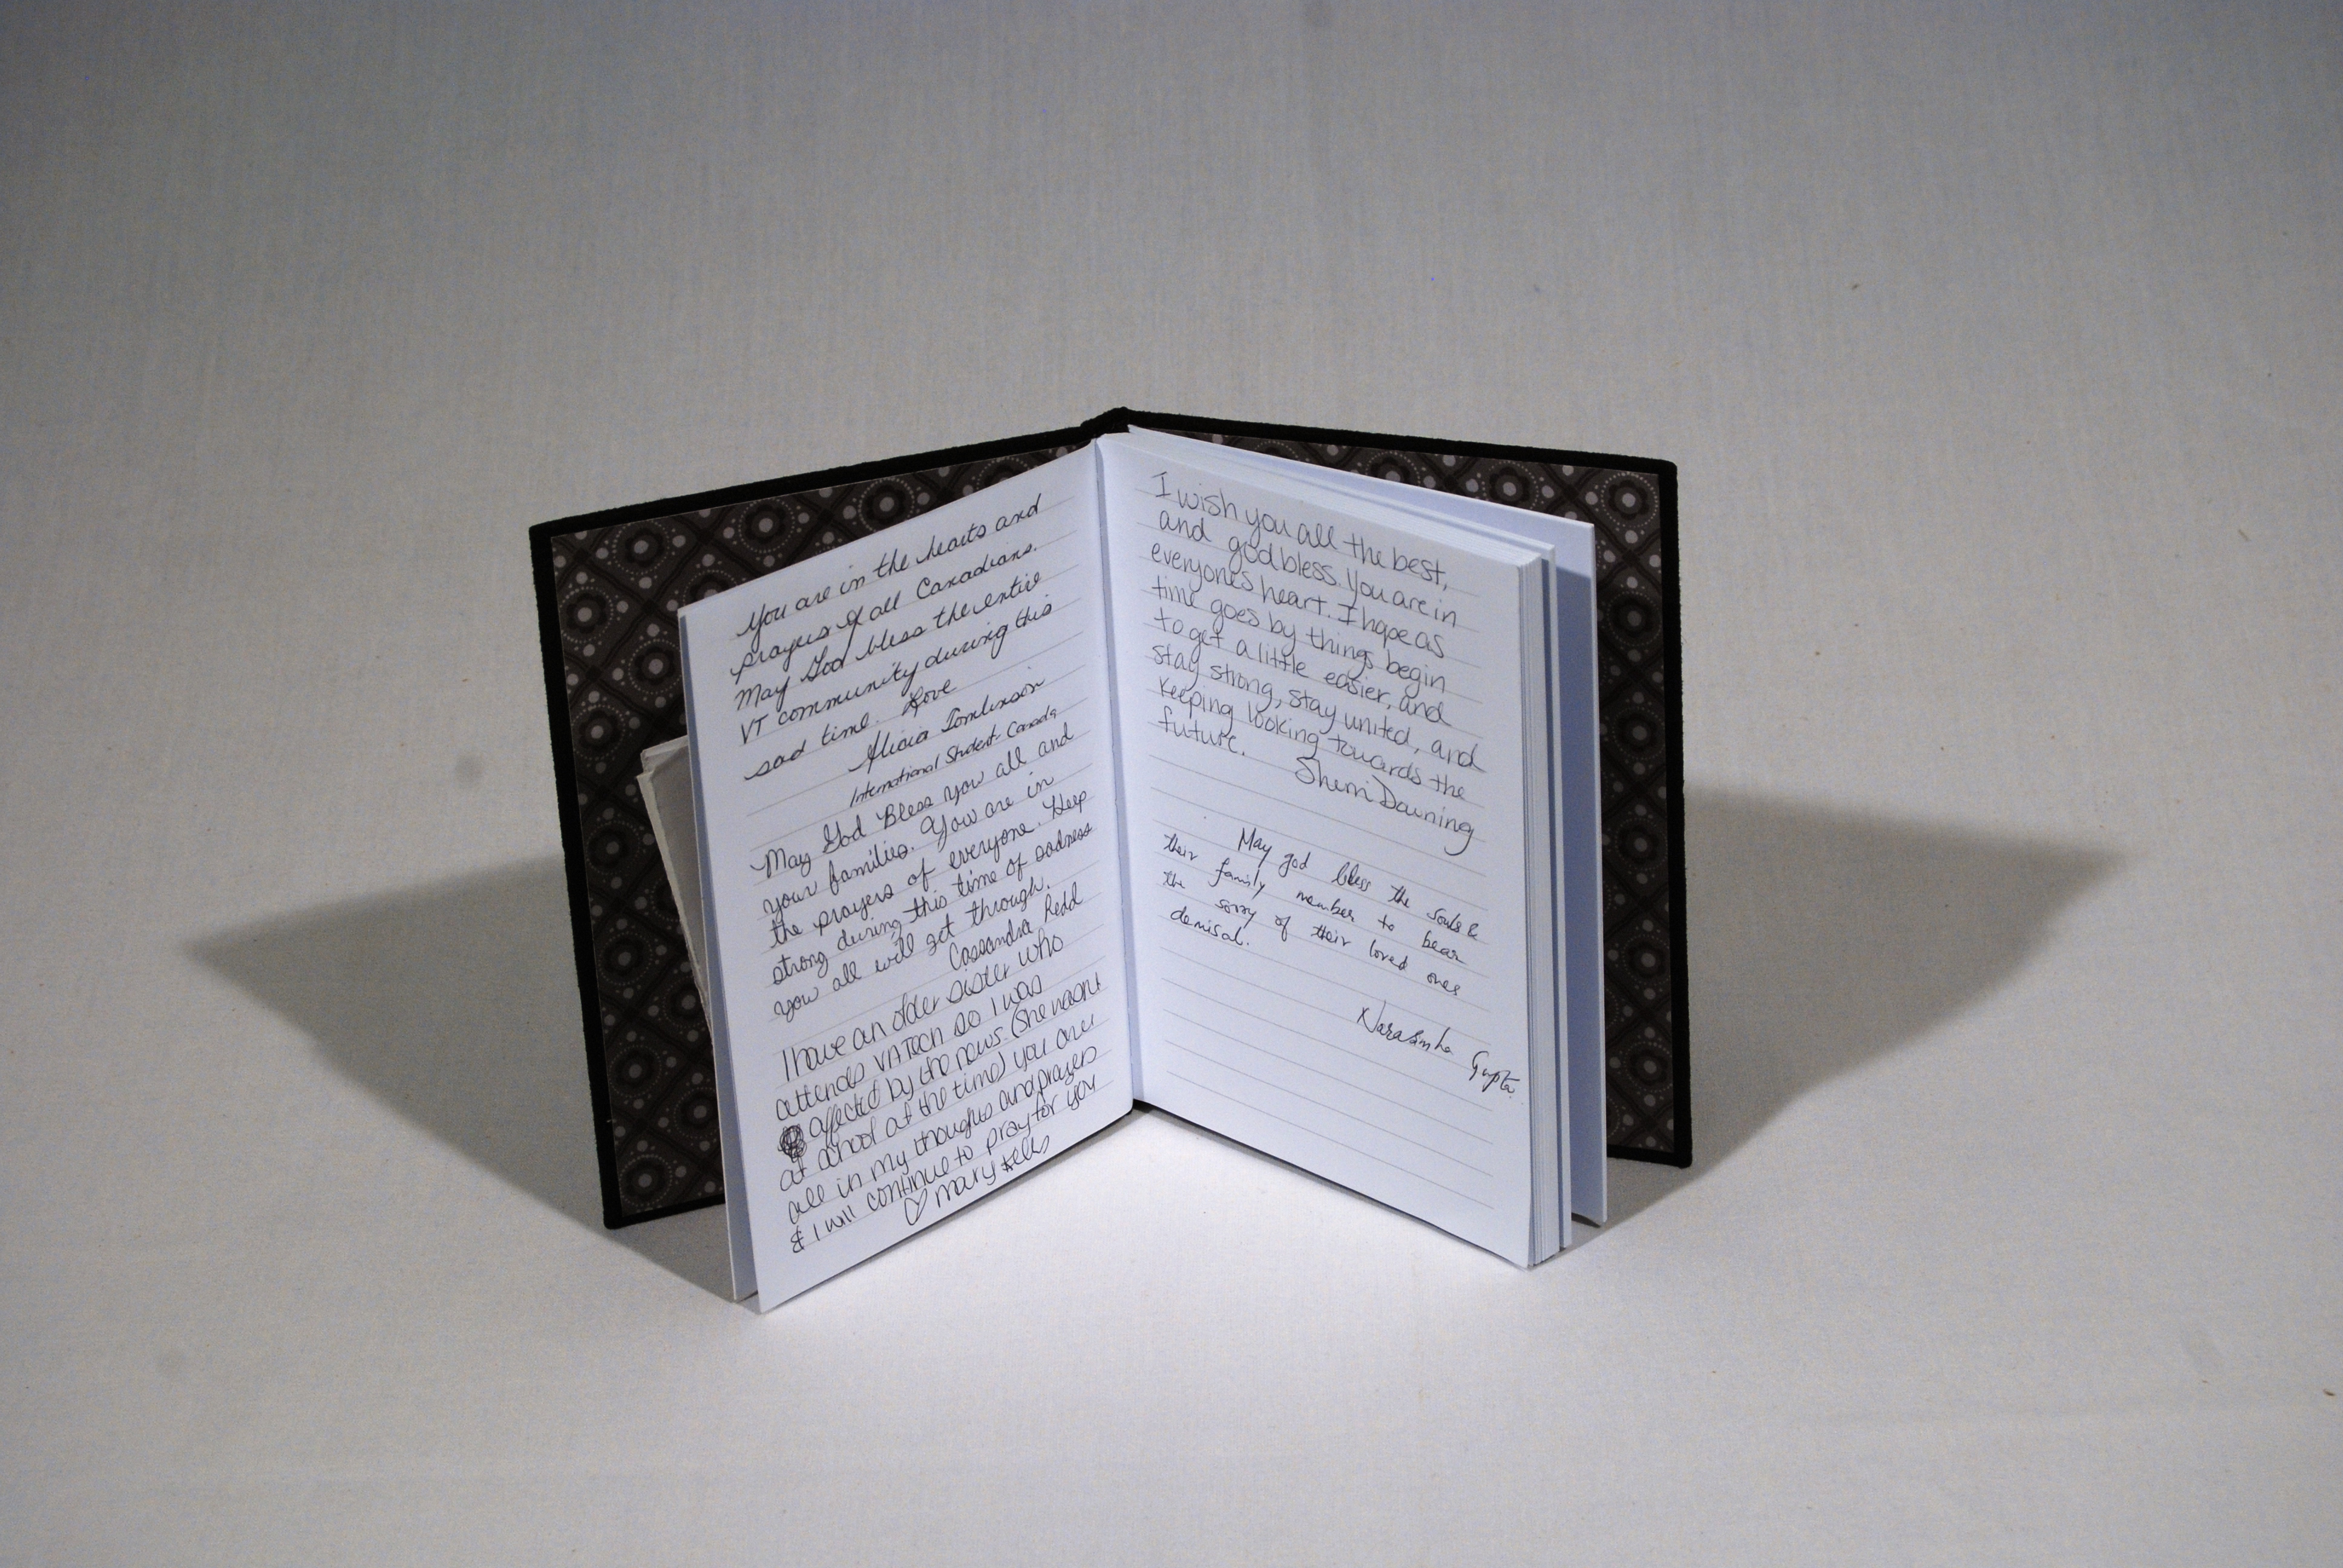 You are in the hearts and
prayers of all Canadians.
May God bless the entire
VT community during this
sad time. Love
Alicia Tomlinson
International Student-Canada
May God Bless you all and
your families. You are in
the prayers of everyone. Keep
strong during this time of sadness
you all will get through.
Cassandra Redd
I have an older sister who
attends VA Tech so I was
affected by the news. (She wasn't
at school at the time) you are
all in my thoughts and prayers
& I will continue to pray for you
♡ Mary
I wish you all the best,
and god bless. You are in
everyones heart. I hope as
time goes by things begin
to get a little easier, and
stay strong, stay united, and
keeping looking towards the
future.
Sherri Downing
May god bless the souls &
their family member to bear
the sorry of their loved ones
demisal.
Narasimha Gupta